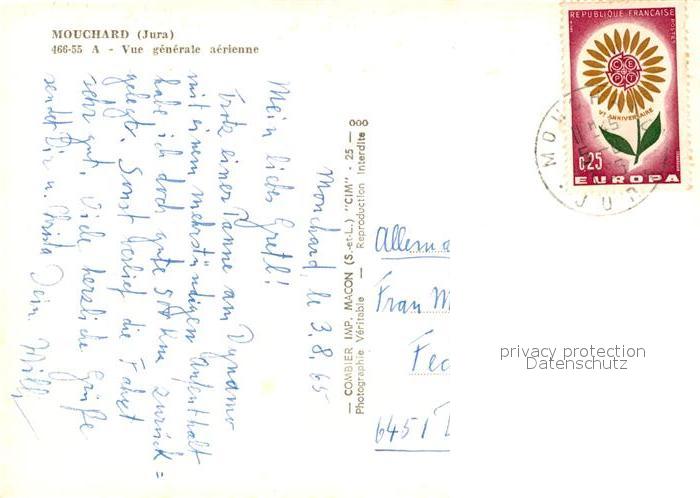 MOUCHARD (Jura)
466-55 A - Vue générale aérienne
Mouchard, le 3.8.65
Mein liebs Gretl!
Trotz einer Panne am Dynamo
mit einem mehrstündigen Aufenthalt
habe ich doch gute 500 km zurück=
gelegt. Sonst verlief die Fahrt
sehr gut. Viele herzliche Grüße
sendet Dir u. Christa Dein Willy
ooo
— COMBIER IMP. MACON (S.-et-L.) "CIM" - 25 —
Photographie Véritable — Reproduction Interdite
REPUBLIQUE FRANÇAISE
POSTES
CEPT
Vᵉ ANNIVERSAIRE
0,25
EUROPA
MOU
JUR
Allema
Frau M
Fec
6451
privacy protection
Datenschutz